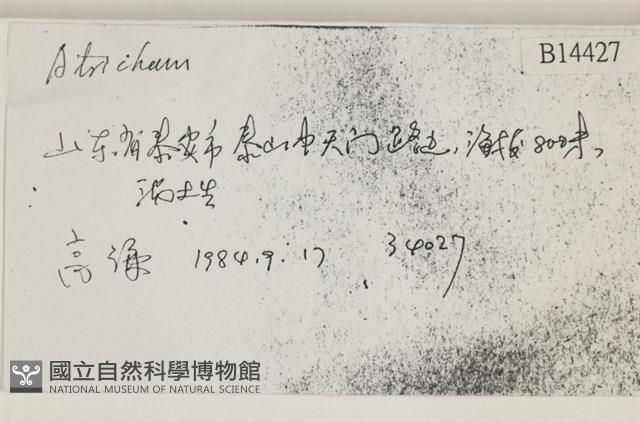 Atricham
B14427
山东省泰安市泰山中天门路边,海拔800米,
湿土生
高谦 1984.9.17 34027
國立自然科學博物館
NATIONAL MUSEUM OF NATURAL SCIENCE